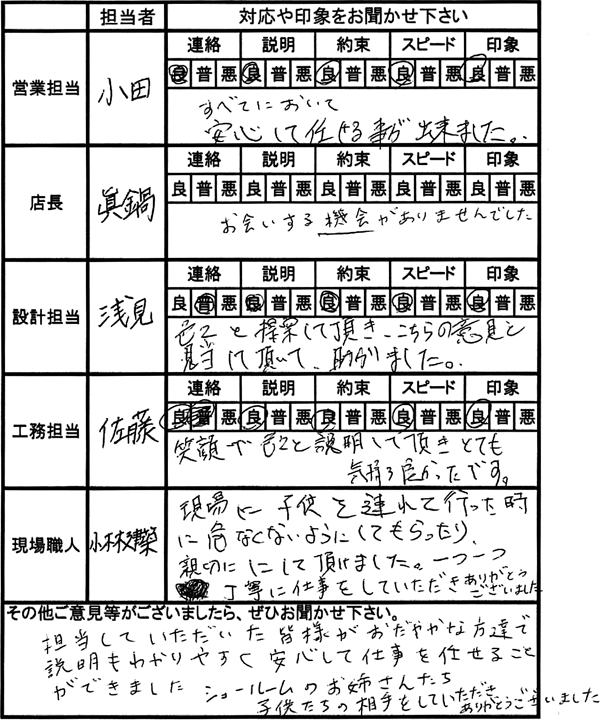 担当者 対応や印象をお聞かせ下さい
営業担当 小田
連絡 説明 約束 スピード 印象
良 普 悪 良 普 悪 良 普 悪 良 普 悪 良 普 悪
すべてにおいて
安心して任せる事が出来ました。
店長 眞鍋
連絡 説明 約束 スピード 印象
良 普 悪 良 普 悪 良 普 悪 良 普 悪 良 普 悪
お会いする機会がありませんでした
設計担当 浅見
連絡 説明 約束 スピード 印象
良 普 悪 良 普 悪 良 普 悪 良 普 悪 良 普 悪
色々と提案して頂き、こちらの意見も
して頂いて、助かりました。
工務担当 佐藤
連絡 説明 約束 スピード 印象
良 普 悪 良 普 悪 良 普 悪 良 普 悪 良 普 悪
笑顔で色々と説明して頂きとても
気持ち良かったです。
現場職人 小林建築
現場に子供を連れて行った時
に危なくないようにしてもらったり、
親切にして頂けました。一つ一つ
丁寧に仕事をしていただきありがとう
ございました
その他ご意見等がございましたら、ぜひお聞かせ下さい。
担当していただいた皆様がおだやかな方達で
説明もわかりやすく安心して仕事を任せること
ができました ショールームのお姉さんたち
子供たちの相手をしていただき
ありがとうございました